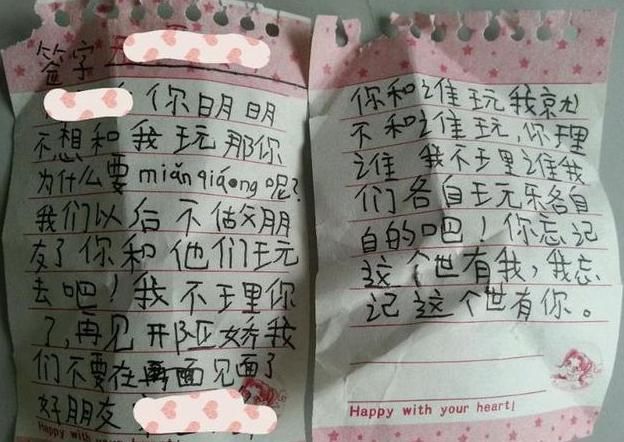 签字
你明明
不想和我玩那你
为什么要miǎnqiáng呢?
我们以后不做朋
友了你和他们玩
去吧!我不理你
了,再见 娇我
们不要在 面见面了
好朋友
Happy with your heart!
你和谁玩我就
不和谁玩,你理
谁 我不理谁我
们各自玩乐各自
自的吧!你忘记
这个世有我,我忘
记这个世有你。
Happy with your heart!